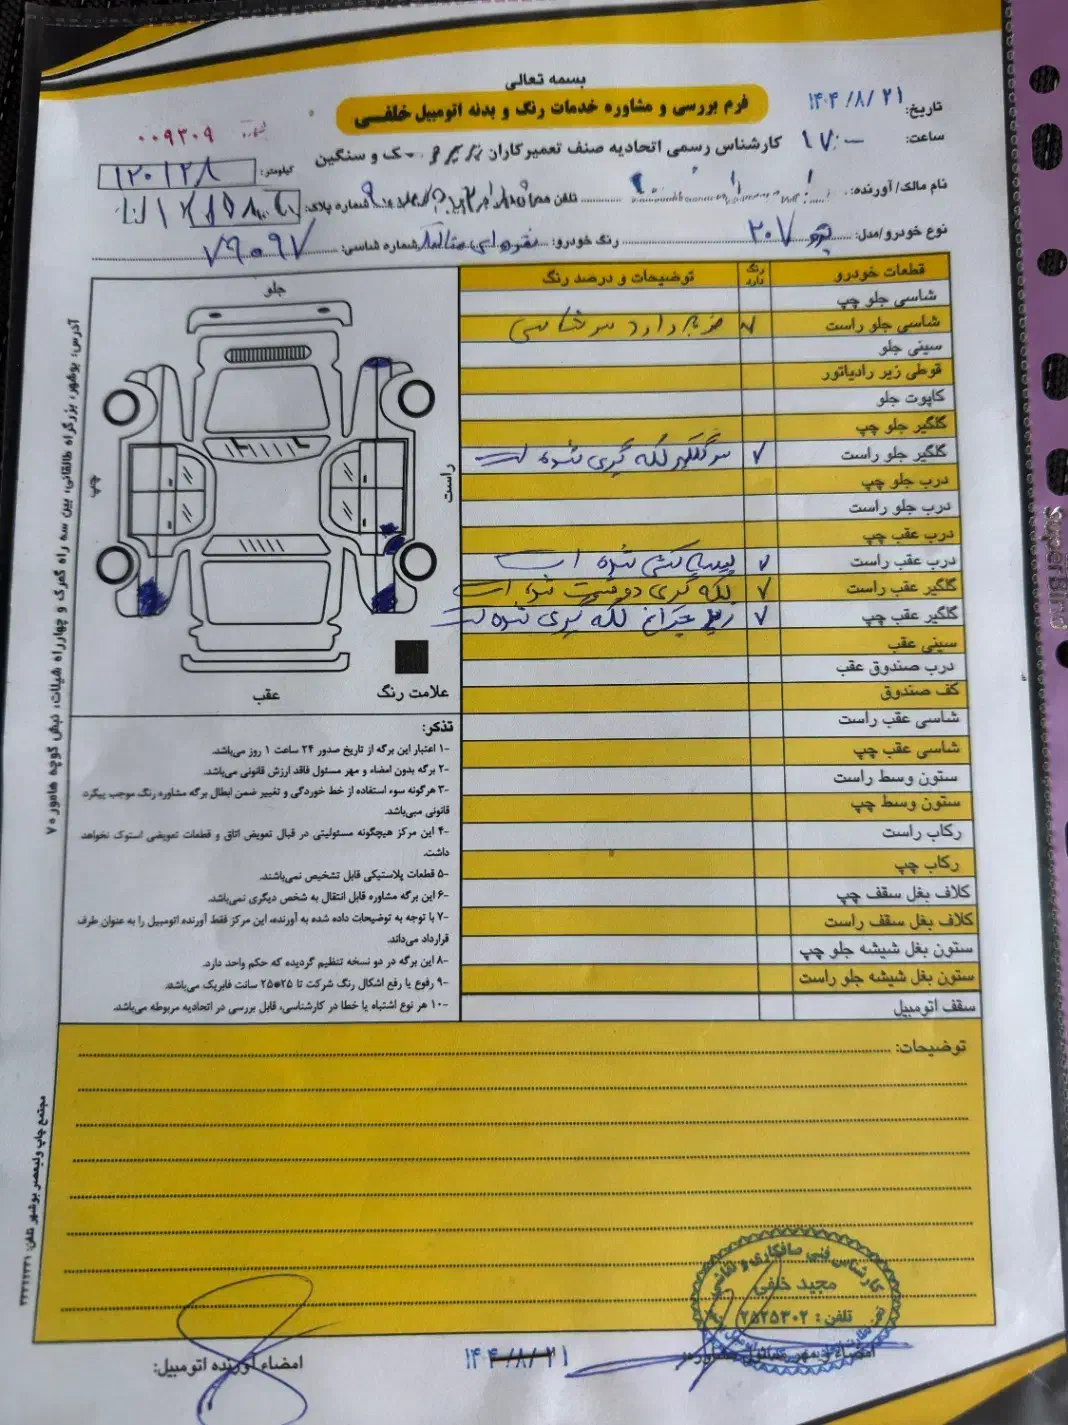 بسمه تعالی
فرم بررسی و مشاوره خدمات رنگ و بدنه اتومبیل خلفــی
تاریخ: ۱۴۰۴/۸/۲۱
۰۰۹۳۰۹
ساعت: ۱۷:۰۰
کارشناس رسمی اتحادیه صنف تعمیرکاران و سنگین
کیلومتر: ۱۲۰۱۲۸
نام مالک/آورنده:
تلفن
شماره پلاک:
نوع خودرو/مدل: پژو ۲۰۷
رنگ خودرو: نقره ای متالیک
شماره شاسی: ۷۹۰۹۷
قطعات خودرو رنگ دارد توضیحات و درصد رنگ
شاسی جلو چپ
شاسی جلو راست ✓ ضربه دارد سر شاسی
سینی جلو
قوطی زیر رادیاتور
کاپوت جلو
گلگیر جلو چپ
گلگیر جلو راست ✓ سر گلگیر لکه گیری شده است
درب جلو چپ
درب جلو راست
درب عقب چپ
درب عقب راست ✓ لیسه کشی شده است
گلگیر عقب راست ✓ لکه گیری دو قسمت شده است
گلگیر عقب چپ ✓ زیر چراغ لکه گیری شده است
سینی عقب
درب صندوق عقب
کف صندوق
شاسی عقب راست
شاسی عقب چپ
ستون وسط راست
ستون وسط چپ
رکاب راست
رکاب چپ
کلاف بغل سقف چپ
کلاف بغل سقف راست
ستون بغل شیشه جلو چپ
ستون بغل شیشه جلو راست
سقف اتومبیل
جلو
راست
چپ
عقب
علامت رنگ
تذکر:
۱- اعتبار این برگه از تاریخ صدور ۲۴ ساعت ۱ روز می‌باشد.
۲- برگه بدون امضاء و مهر مسئول فاقد ارزش قانونی می‌باشد.
۳- هرگونه سوء استفاده از خط خوردگی و تغییر ضمن ابطال برگه مشاوره رنگ موجب پیگرد
قانونی می‌باشد.
۴- این مرکز هیچگونه مسئولیتی در قبال تعویض اتاق و قطعات تعویضی استوک نخواهد
داشت.
۵- قطعات پلاستیکی قابل تشخیص نمی‌باشند.
۶- این برگه مشاوره قابل انتقال به شخص دیگری نمی‌باشد.
۷- با توجه به توضیحات داده شده به آورنده، این مرکز فقط آورنده اتومبیل را به عنوان طرف
قرارداد می‌داند.
۸- این برگه در دو نسخه تنظیم گردیده که حکم واحد دارد.
۹- رفوع یا رفع اشکال رنگ شرکت تا ۲۵*۲۵ سانت فابریک می‌باشد.
۱۰- هر نوع اشتباه یا خطا در کارشناسی، قابل بررسی در اتحادیه مربوطه می‌باشد.
آدرس: بوشهر، بزرگراه طالقانی، بین سه راه گمرک و چهارراه شیلات، نبش کوچه هامور ۷۰
توضیحات:
کارشناس فنی صافکاری و نقاشی
مجید خلفی
تلفن: ۲۵۲۵۳۰۲
امضاء و مهر
۱۴۰۴/۸/۲۱
امضاء آورنده اتومبیل:
مجتمع چاپ ولیعصر بوشهر تلفن:
SuperBind